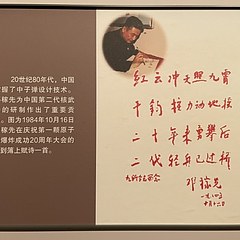 20世纪80年代，中国
握了中子弹设计技术。
稼先为中国第二代核武
的研制作出了重要贡
。图为1984年10月16日
稼先在庆祝第一颗原子
爆炸成功20周年大会的
到簿上赋诗一首。
红云冲天照九霄
千钧核力动地摇
二十年来勇攀后
二代轻舟已过桥
邓稼先